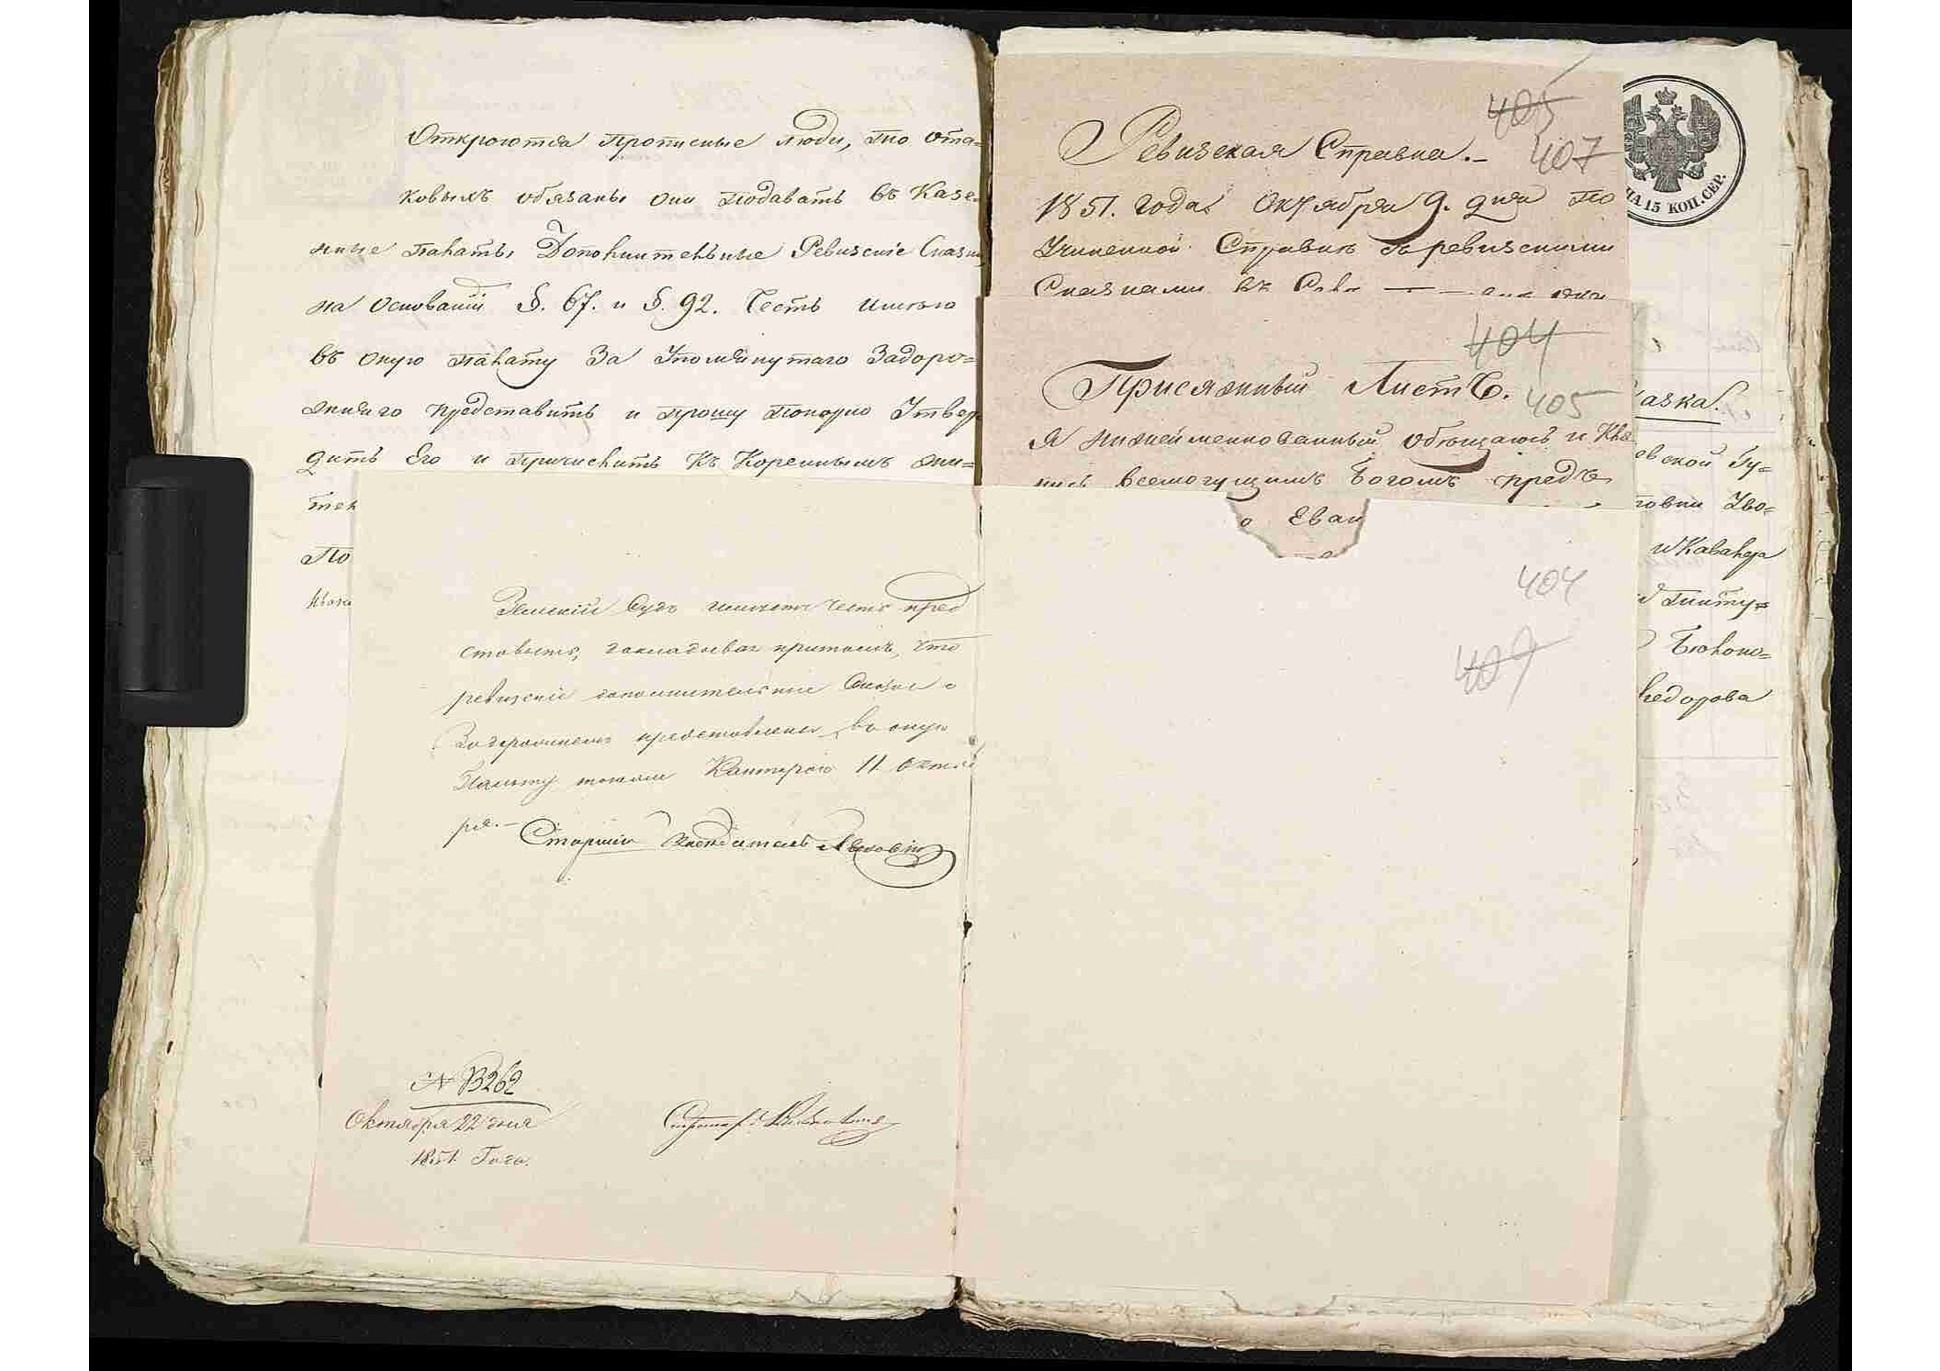 Откроются прописные люди, то ота=
ковыхъ обязаны они подавать въ Казе=
ние палаты Дополнительные Ревизскіе Сказки
на основаніи §. 67. и §. 92. Честь имѣю
въ оную палату За Упомянутаго Задоро=
жняго представить и прошу покорно Утвер
дить Его и причислить Къ Кореннымъ жи=
тел
По
Земскій Судъ имѣетъ честь пред
ставить, докладывая притомъ, что
ревизскіе дополнительные Сказки о
Задорожнемъ представлены въ оную
Палату тоюжъ Канторою 11 Октяб
ря.—
Старшій Засѣдатель
№ 13262
Октября 22 дня
1851 Года.
405
407
Ревизская Справка.—
1851. года Октября 9. дня по
Учиненной Справкѣ съ ревизскими
Сказками въ
404
405
Присяжный Листъ.
Я нижейменнованный обѣщаюсь и Кля
нусь всемогущимъ Богомъ предъ
о Еван
404
407
НА 15 КОП. СЕР.
азка.
евской Гу=
Федорова